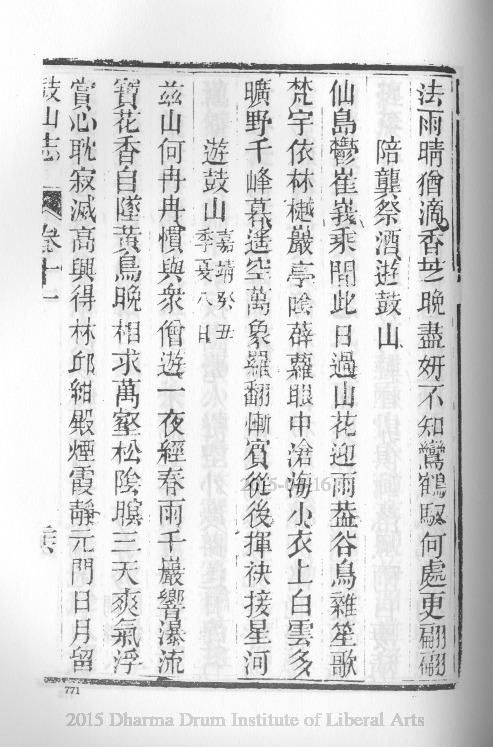 法雨晴猶滴香芝晚盡妍不知鸞鶴馭何處更翩翩
陪龔祭酒遊鼓山
仙島鬱崔嵬乘閒此日過山花迎雨葢谷鳥雜笙歌
梵宇依林樾巖亭陰薜蘿眼中滄海小衣上白雲多
曠野千峰暮遙空萬象羅翻慚賓從後揮袂接星河
遊鼓山嘉靖癸丑季夏八日
茲山何冉冉慣與衆僧遊一夜經春雨千巖響瀑流
寶花香自墜黃鳥晚相求萬壑松陰瞑三天爽氣浮
賞心耽寂滅高興得林邱紺殿煙霞靜元門日月留
鼓山志 卷十一
771
2015 Dharma Drum Institute of Liberal Arts